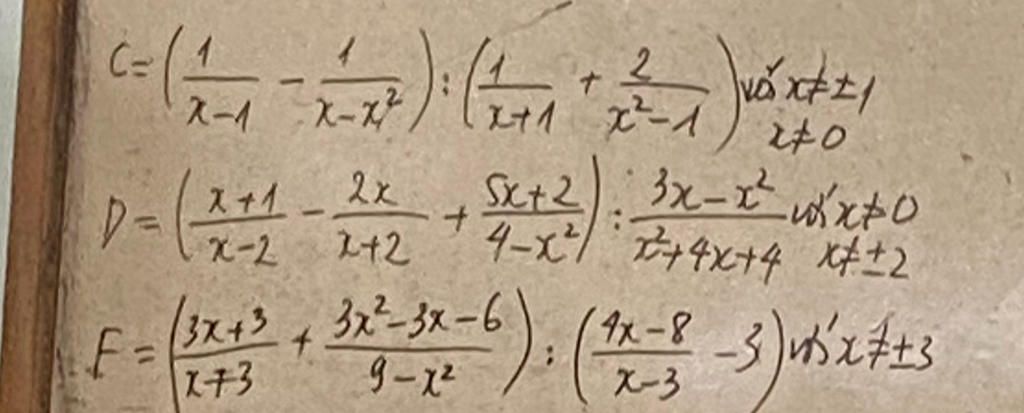 C = (1/(x-1) - 1/(x-x²)) : (1/(x+1) + 2/(x²-1)) với x ≠ ±1
x ≠ 0
D = ((x+1)/(x-2) - 2x/(x+2) + (5x+2)/(4-x²)) : (3x-x²)/(x²+4x+4) với x ≠ 0
x ≠ ±2
F = ((3x+3)/(x+3) + (3x²-3x-6)/(9-x²)) : ((4x-8)/(x-3) - 3) với x ≠ ±3